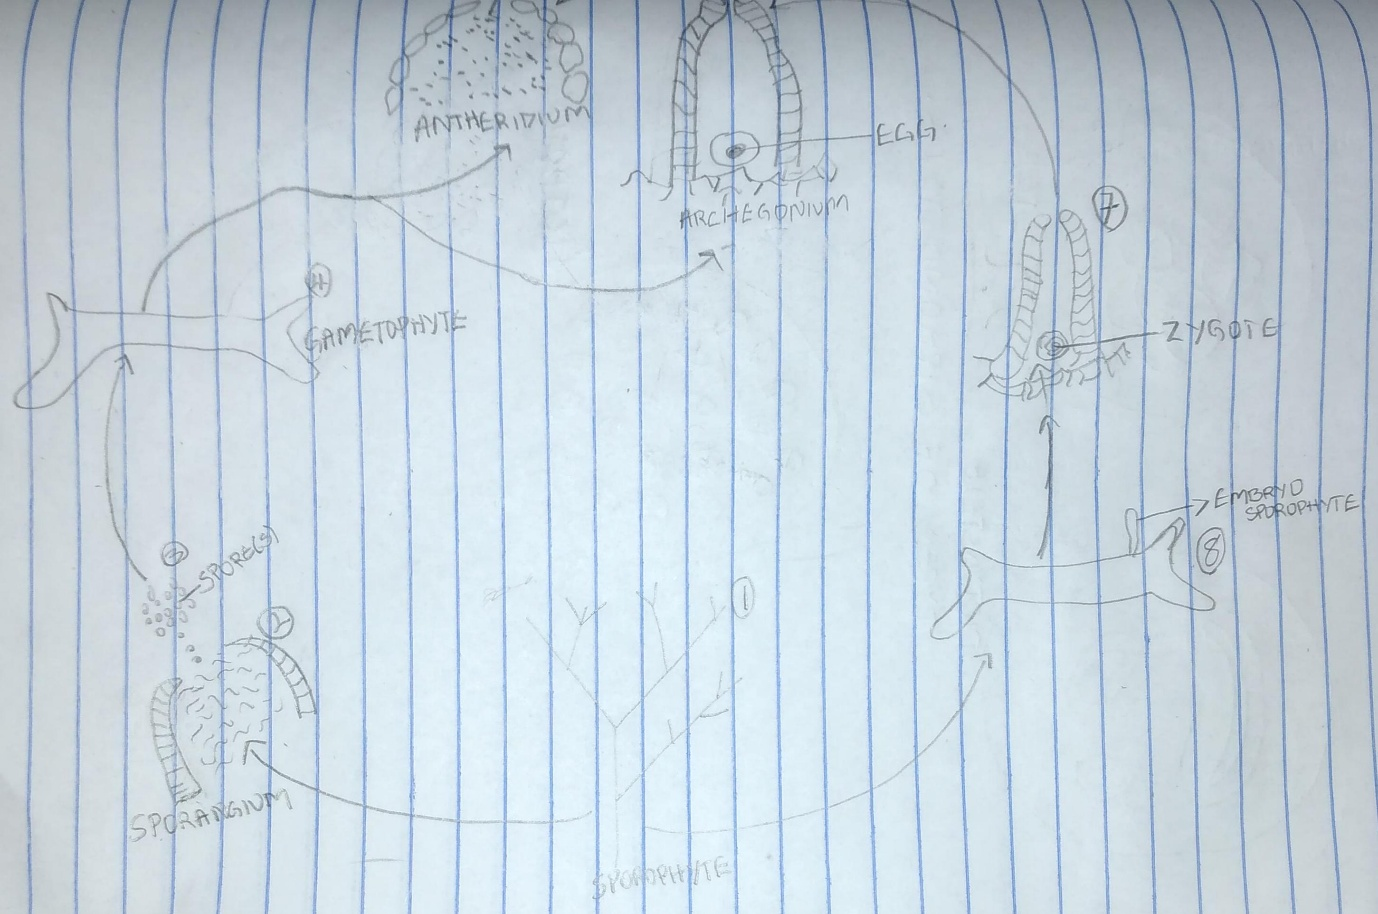 ANTHERIDIUM
EGG
ARCHEGONIUM
7
4
GAMETOPHYTE
ZYGOTE
EMBRYO
SPOROPHYTE
8
3
SPORE(S)
1
2
SPORANGIUM
SPOROPHYTE